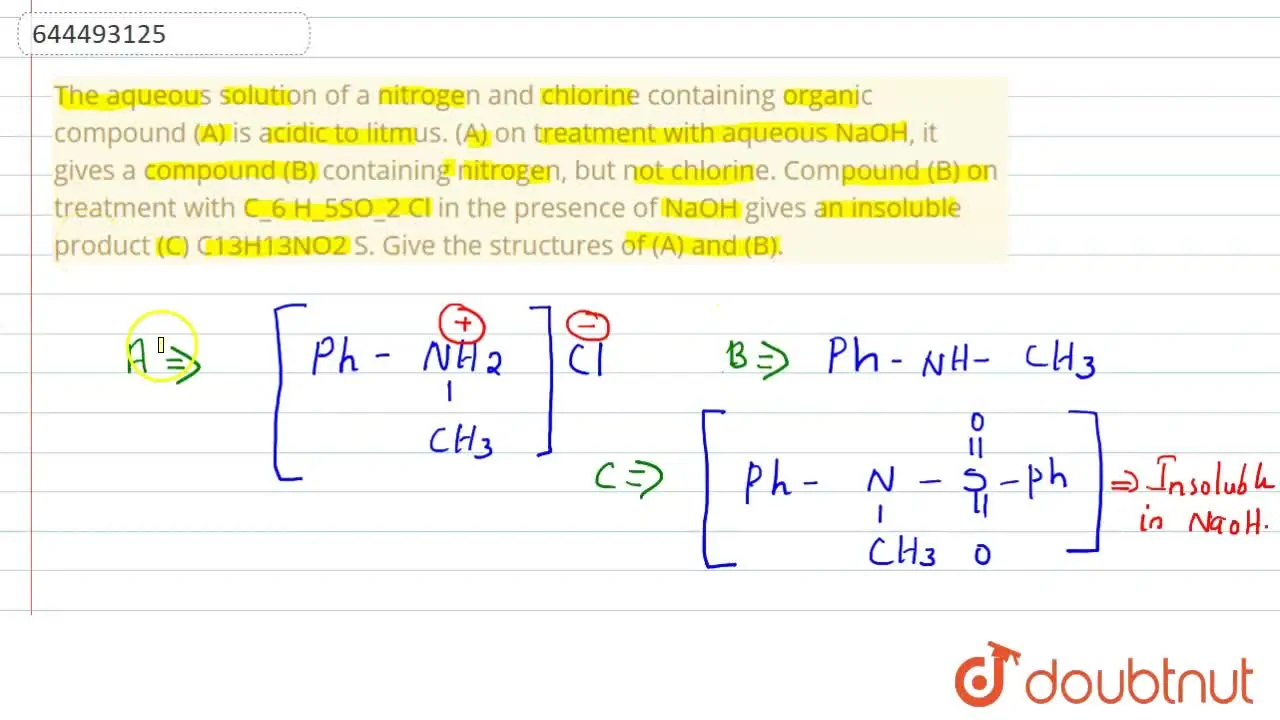 644493125
The aqueous solution of a nitrogen and chlorine containing organic
compound (A) is acidic to litmus. (A) on treatment with aqueous NaOH, it
gives a compound (B) containing nitrogen, but not chlorine. Compound (B) on
treatment with C_6 H_5SO_2 Cl in the presence of NaOH gives an insoluble
product (C) C13H13NO2 S. Give the structures of (A) and (B).
A ⇒ [ Ph - NH2 ] Cl
+ −
CH3
B ⇒ Ph - NH - CH3
C ⇒ [ Ph - N - S - Ph ] ⇒ Insoluble
in NaOH.
O
CH3 O
doubtnut